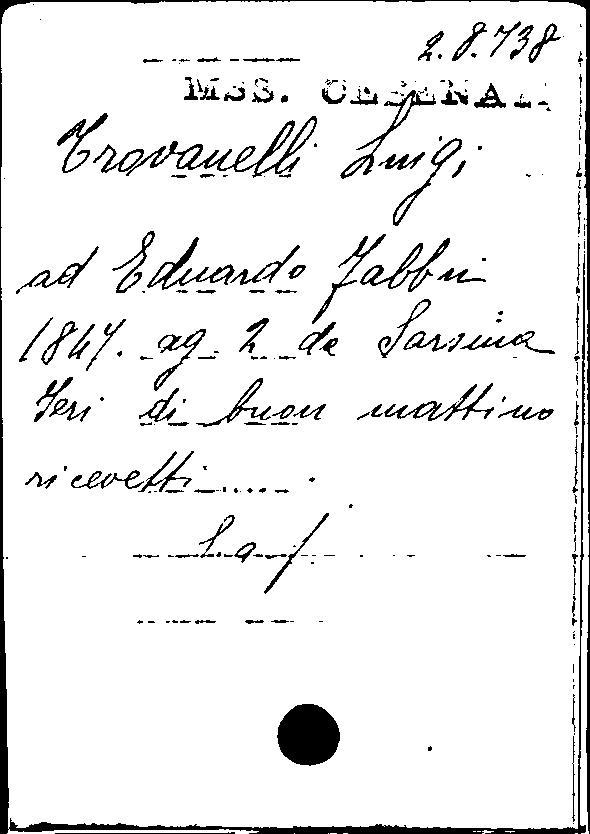 2.8.738
MSS. CESENA
Trovanelli Luigi
ad Eduardo Fabbri
1847. ag. 2 da Sarsina
Ieri di buon mattino
ricevetti......
L. a f.